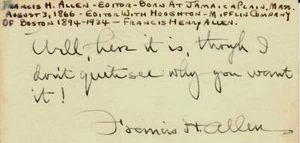 FRANCIS H. ALLEN - EDITOR - BORN AT JAMAICA PLAIN, MASS.
AUGUST 3, 1866 - EDITOR WITH HOUGHTON - MIFFLIN COMPANY
OF BOSTON 1894-1934 - FRANCIS HENRY ALLEN.
Well, here it is, though I
don't quite see why you want
it!
Francis H. Allen